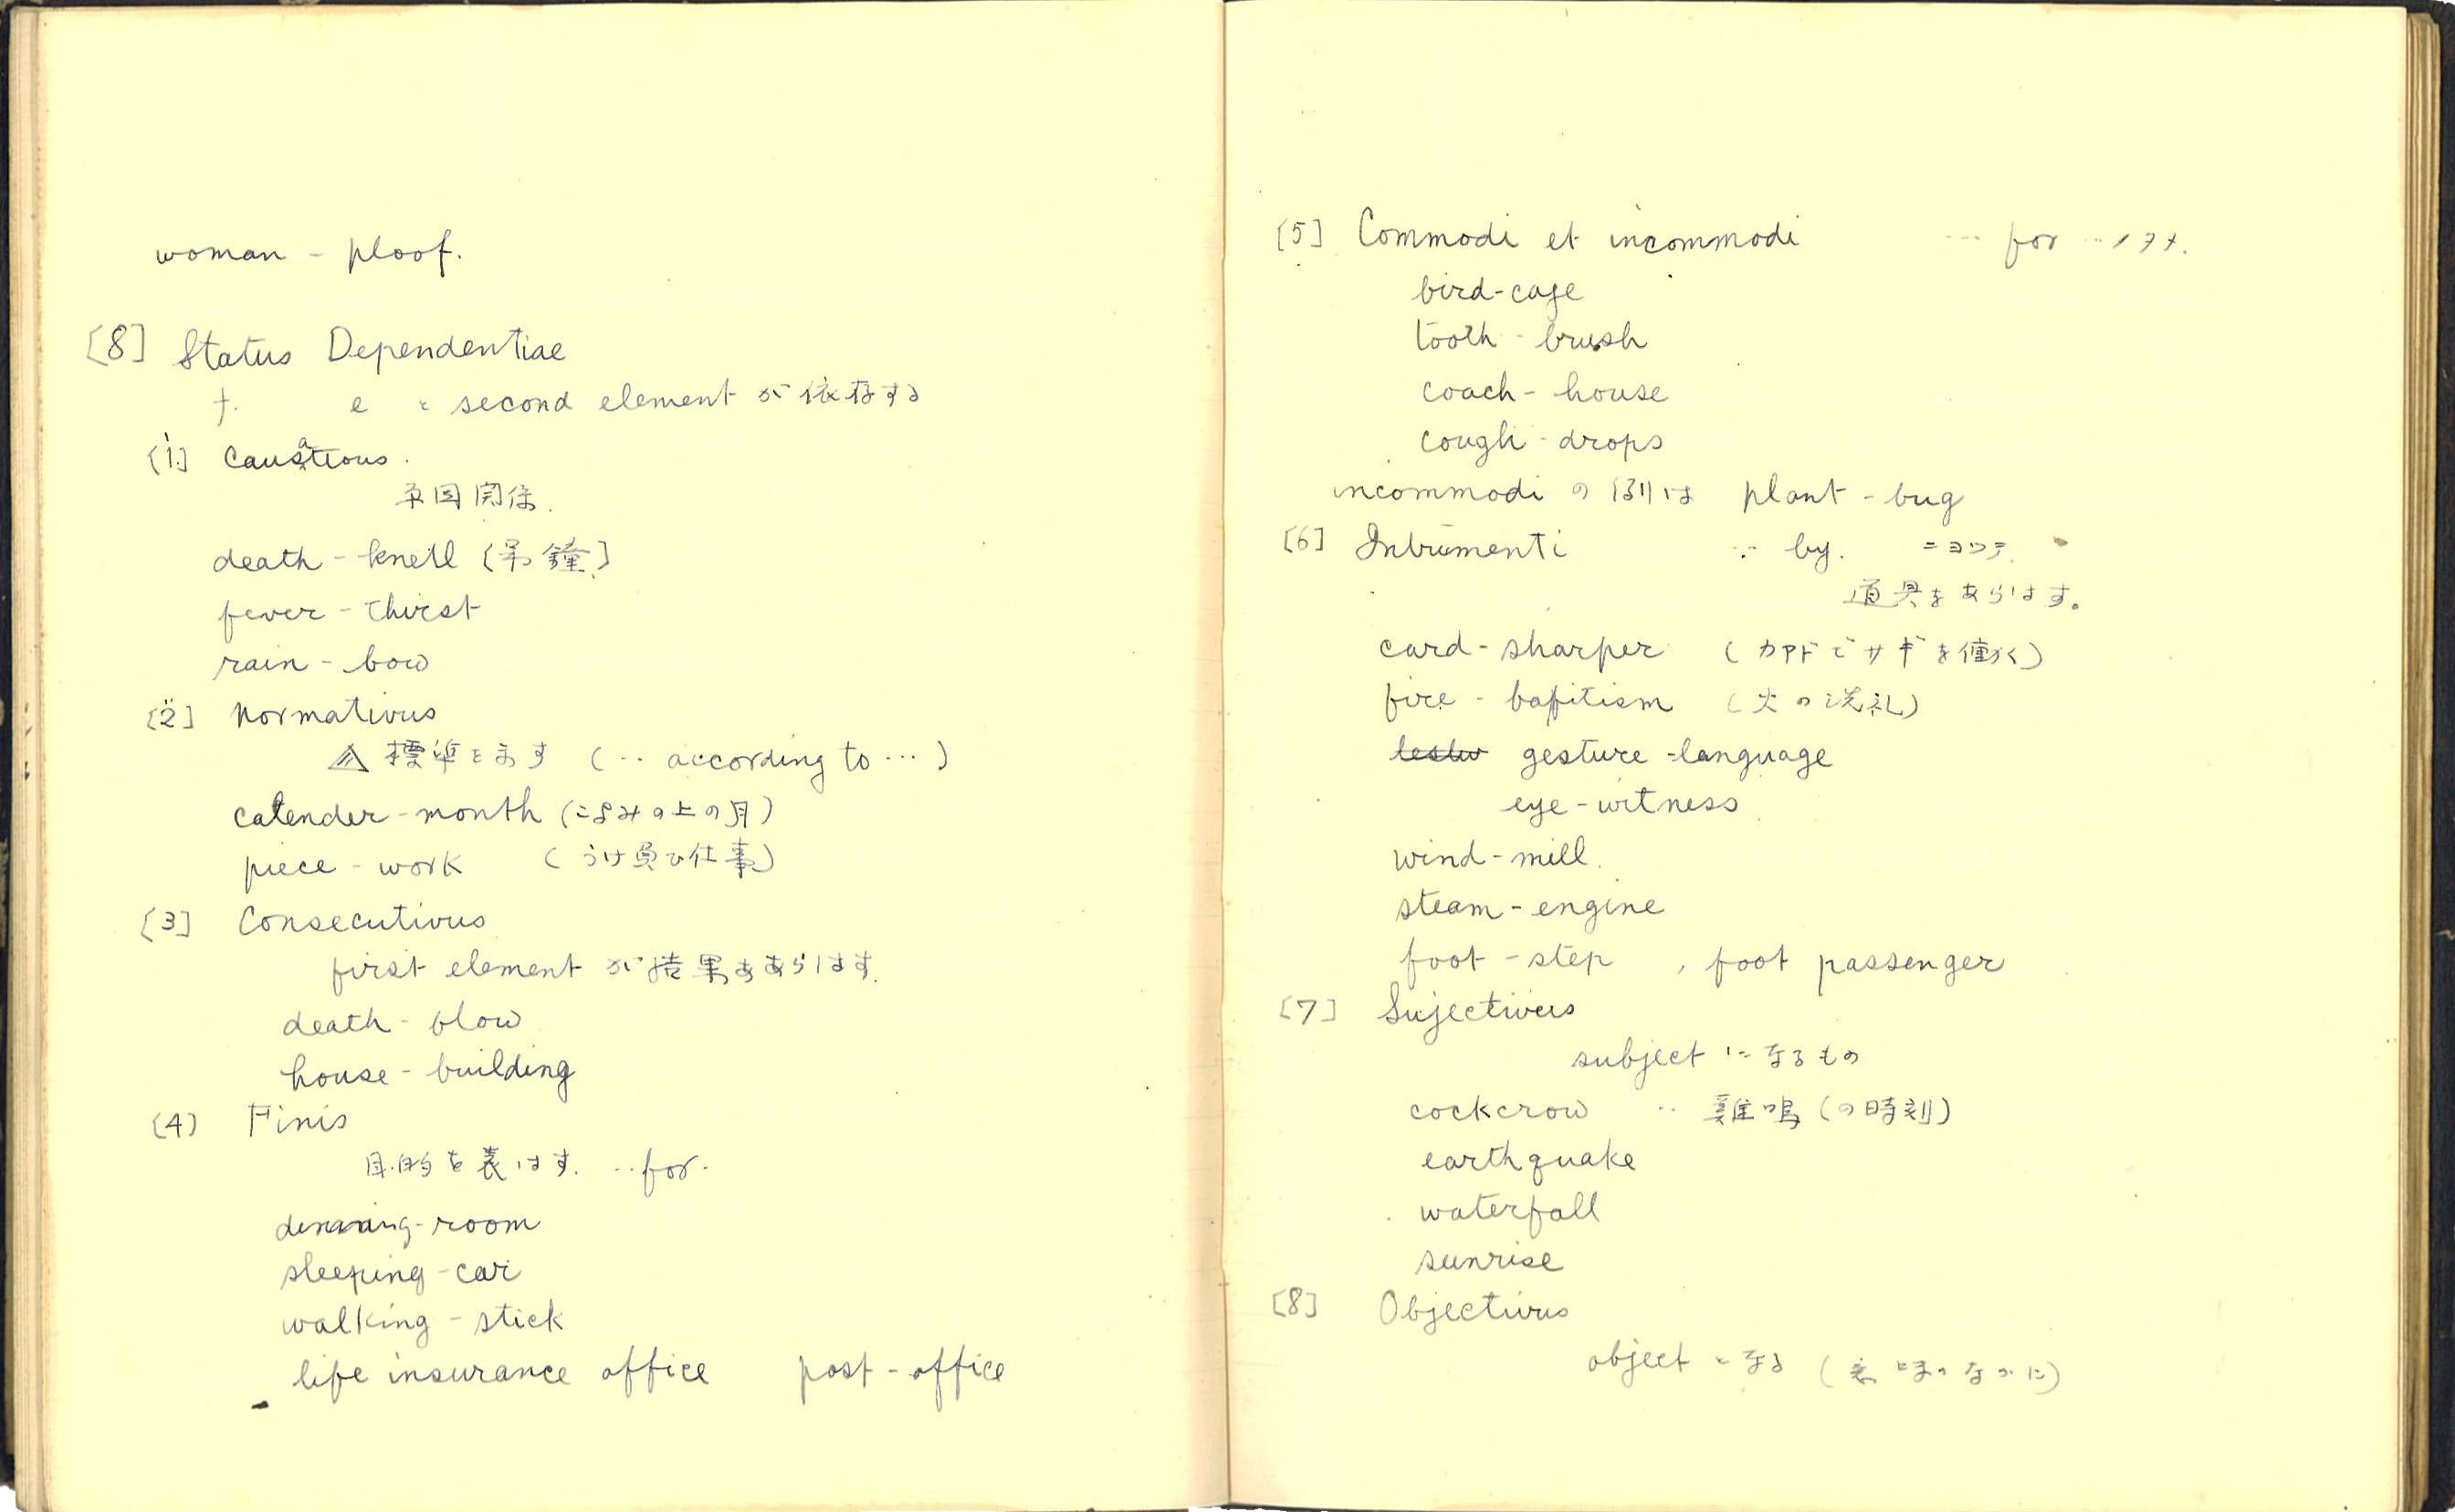 woman - ploof.
[8] Status Dependentiae
f. e と second element が依存する
[1] Causations.
原因関係.
death - knell [弔鐘]
fever - thirst
rain - bow
[2] Normativus
標準を示す (‥ according to … )
calender - month (こよみの上の月)
piece - work (うけ負ひ仕事)
[3] Consecutivus
first element が結果をあらはす.
death - blow
house - building
[4] Finis
目的を表はす. ‥for‥
dinning-room
sleeping - car
walking - stick
life insurance office post - office
[5] Commodi et incommodi … for …ノタメ.
bird-cage
tooth - brush
coach - house
cough - drops
incommodi の例は plant - bug
[6] Intrumenti ‥ by. ニヨツテ.
道具をあらはす。
card - sharper (カアドでサギを働く)
fire - baptism (火の洗礼)
gesture - language
eye - witness
wind - mill.
steam - engine
foot - step , foot passenger
[7] Sujectivus
subject になるもの
cockcrow ‥ 雞鳴(の時刻)
earthquake
waterfall
sunrise
[8] Objectivus
object となる (意味のなかに)